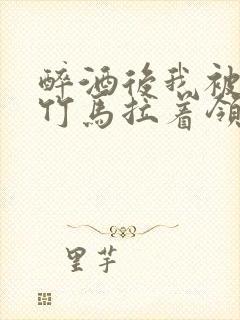 醉酒後我被
竹馬拉着領
里芋